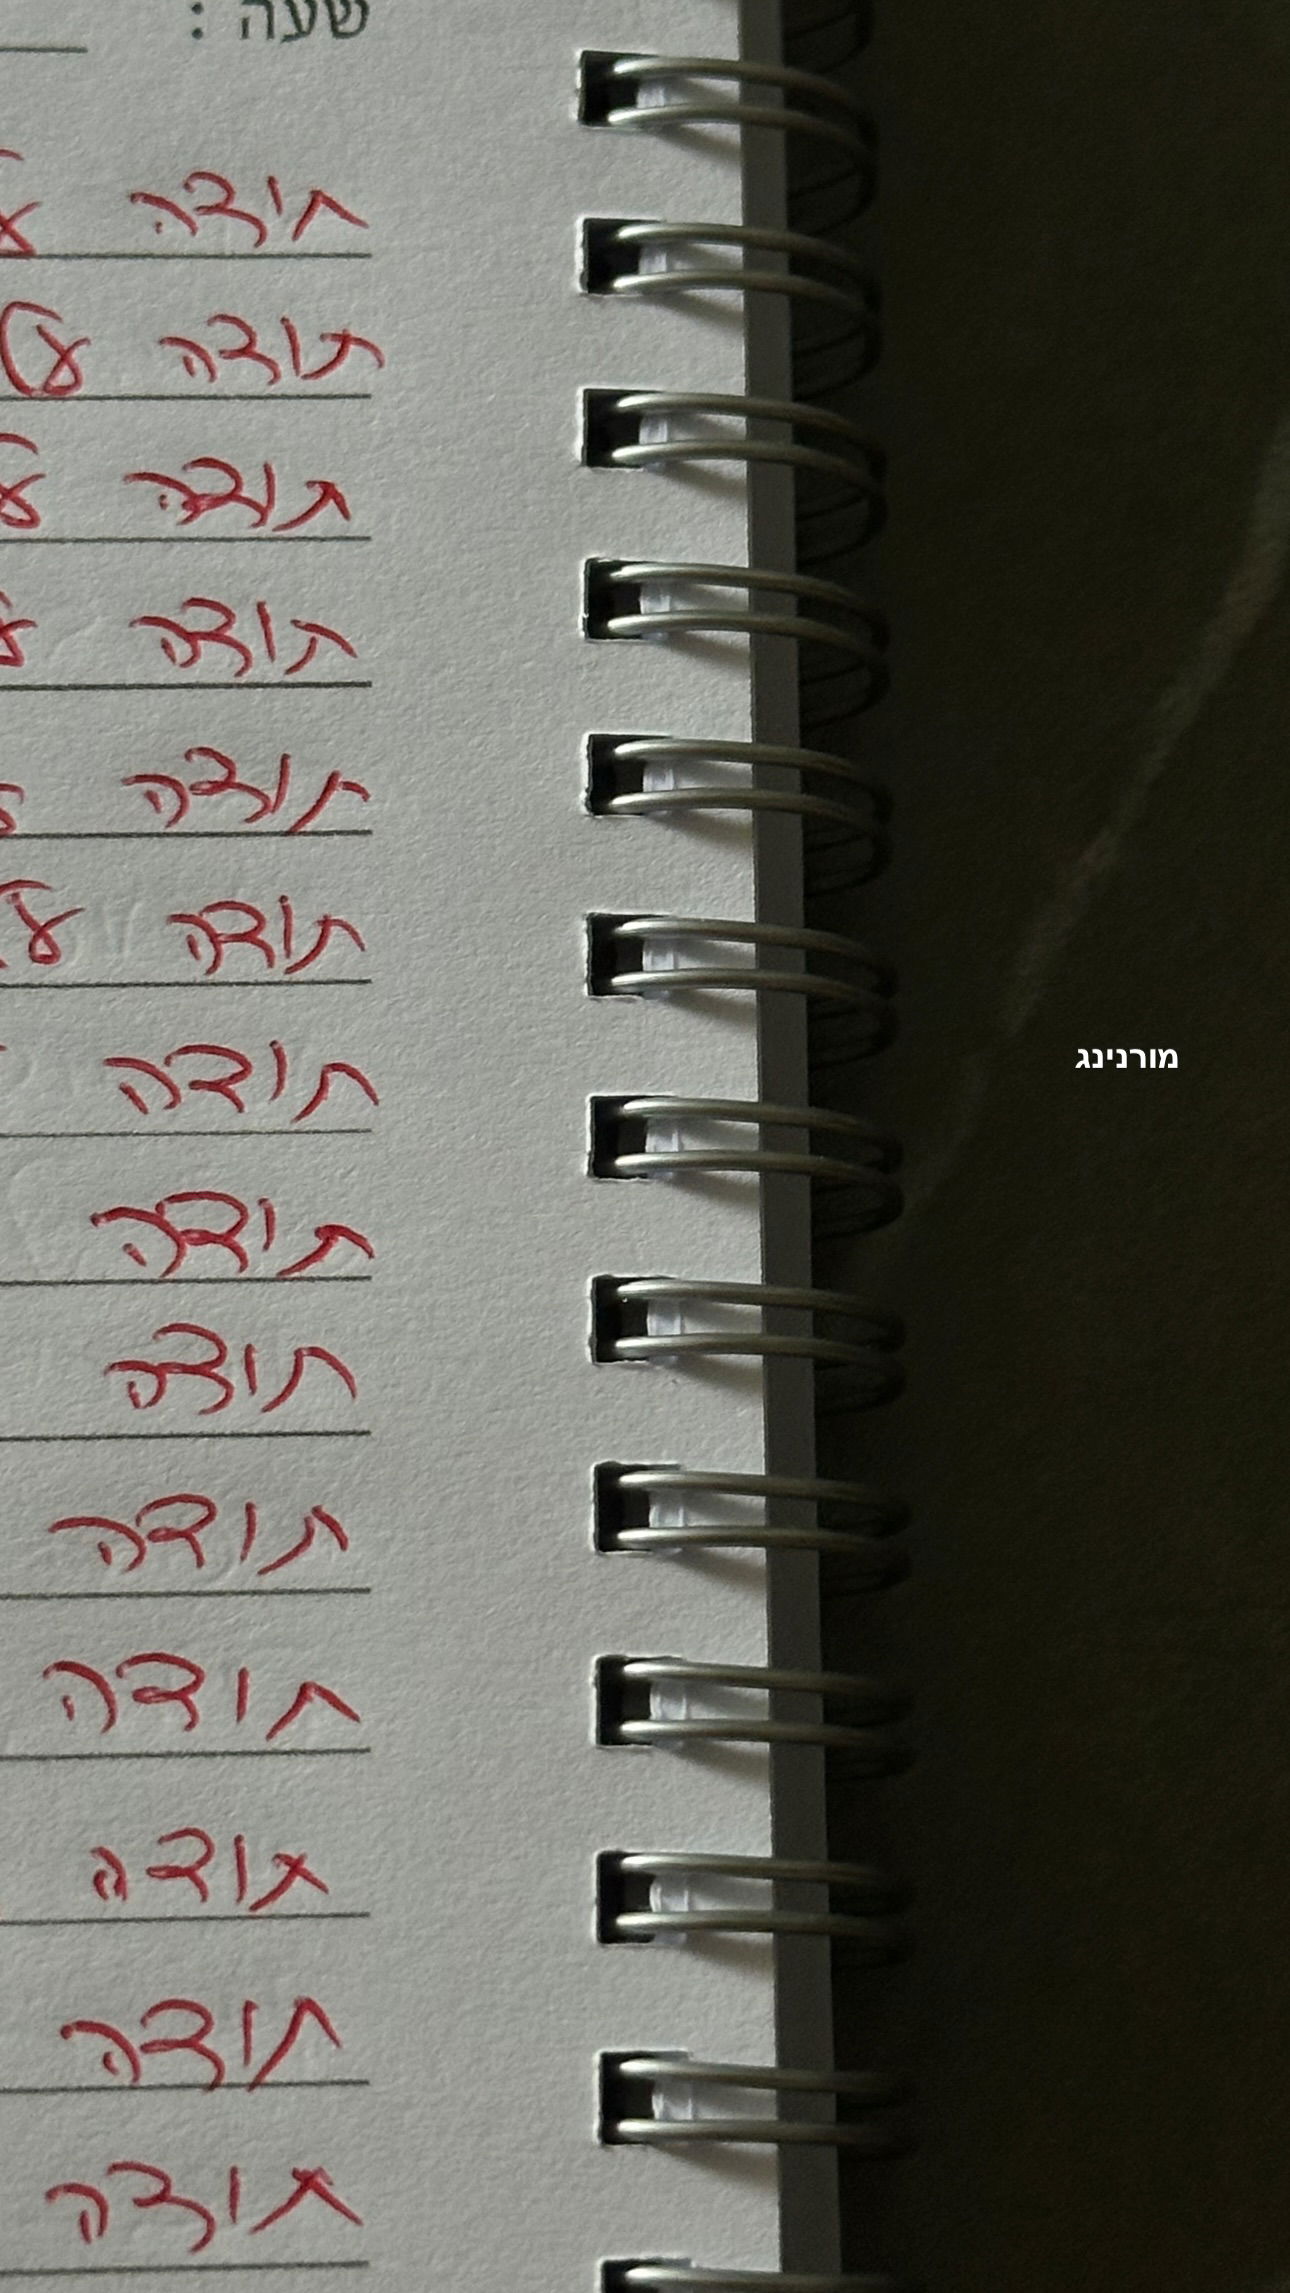 שעה :
תודה
תודה על
תודה
תודה
תודה
תודה
תודה
תודה
תודה
תודה
תודה
תודה
תודה
תודה
מורנינג